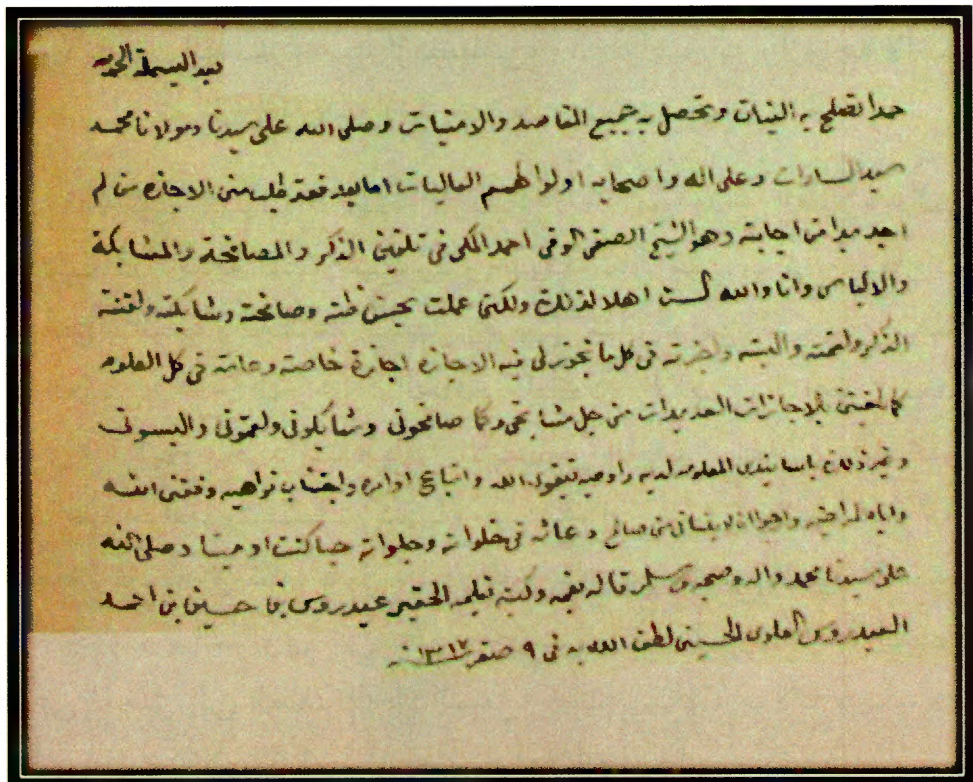 بعد البسملة الحمدلة
حمدا تصلح به النيات وتحصل به جميع المقاصد والامنيات وصلى الله على سيدنا ومولانا محمد
سيد السادات وعلى اله واصحابه اولوا الهمم العاليات اما بعد فقد طلب منى الاجازه من لم
اجد بدا من اجابته وهو الشيخ الصفى الوفى احمد المكى فى تلقين الذكر والمصافحة والمشابكة
والالباس وانا والله لست اهلا لذلك ولكنى عملت بحسن ظنه وصافحته وشابكته ولقنته
الذكر والقمته والبسته واجزته فى كل ما تجوز لى فيه الاجازه اجازة خاصة وعامة فى كل العلوم
كما بالاجازات العديدات من جل مشايخى وكما صافحونى وشابكونى ولقمونى والبسونى
وغير ذلك باسانيدى المعلومه لديه واوصيه بتقوى الله واتباع اوامره واجتناب نواهيه وفقنى الله
واياه لمراضيه وان لا ينسانى من صالح دعائه فى خلواته وجلواته حيا كنت او ميتا وصلى الله
على سيدنا محمد واله وصحبه وسلم قاله بفمه وكتبه بقلمه الحقير عيدروس بن حسين بن احمد
العيدروس العلوى الحسينى لطف الله به فى ٩ صفر